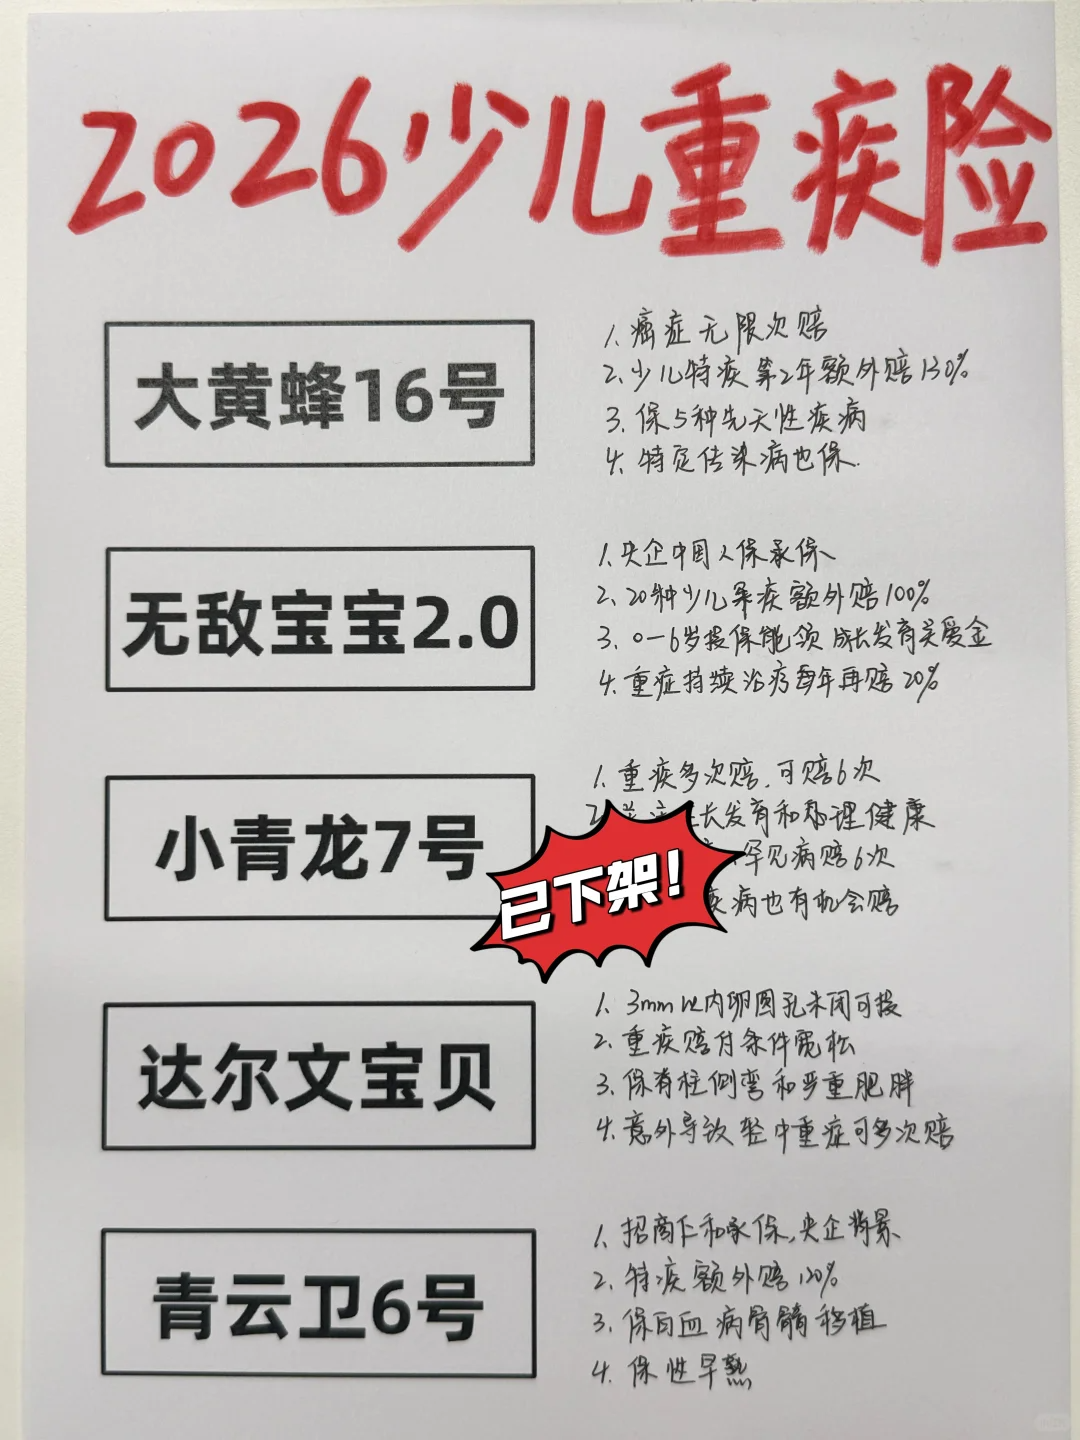 2026少儿重疾险
大黄蜂16号
1. 癌症无限次赔
2. 少儿特疾第2年额外赔130%
3. 保5种先天性疾病
4. 特定传染病也保.
无敌宝宝2.0
1. 央企中国人保承保
2. 20种少儿罕疾额外赔100%
3. 0-6岁投保能领成长发育关爱金
4. 重症持续治疗每年再赔20%
小青龙7号
1. 重疾多次赔,可赔6次
2. 长发育和心理健康
罕见病赔6次
疾病也有机会赔
已下架!
达尔文宝贝
1. 3mm以内卵圆孔未闭可投
2. 重疾赔付条件宽松
3. 保脊柱侧弯和严重肥胖
4. 意外导致轻中重症可多次赔
青云卫6号
1. 招商仁和承保,央企背景
2. 特疾额外赔120%
3. 保白血病骨髓移植
4. 保性早熟